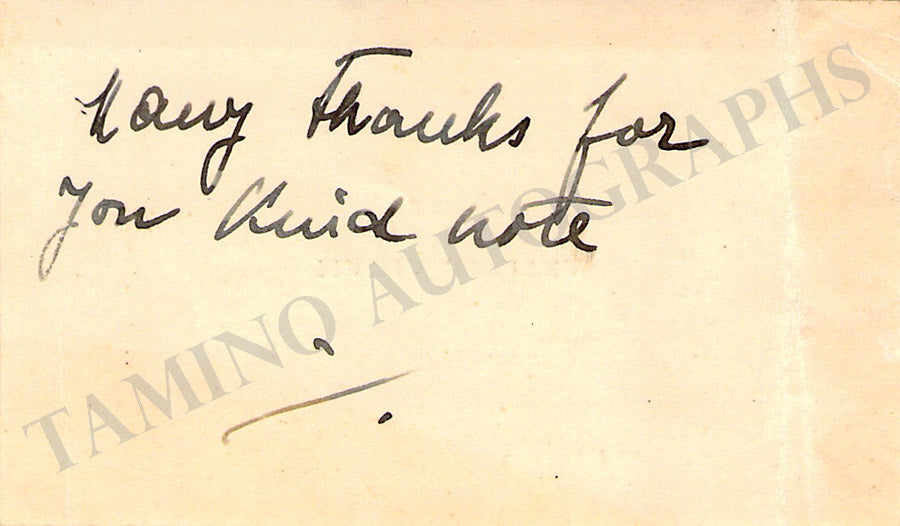 Many Thanks for
you kind note
TAMINO AUTOGRAPHS